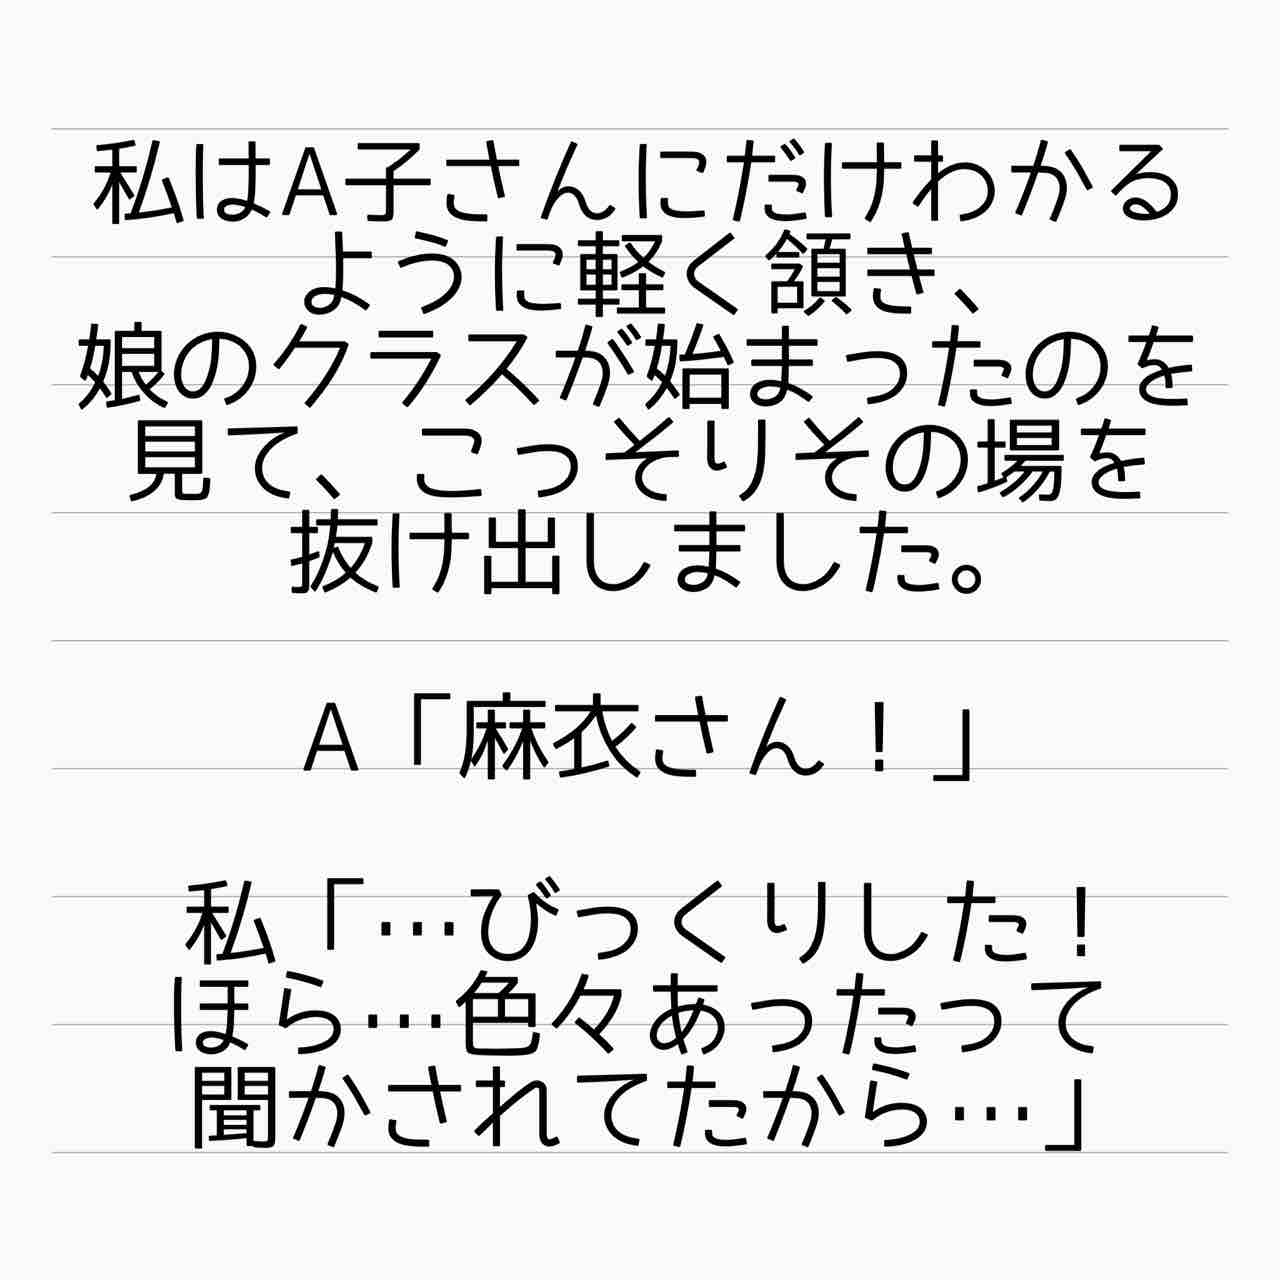 私はA子さんにだけわかる
ように軽く頷き、
娘のクラスが始まったのを
見て、こっそりその場を
抜け出しました。
A「麻衣さん！」
私「…びっくりした！
ほら…色々あったって
聞かされてたから…」